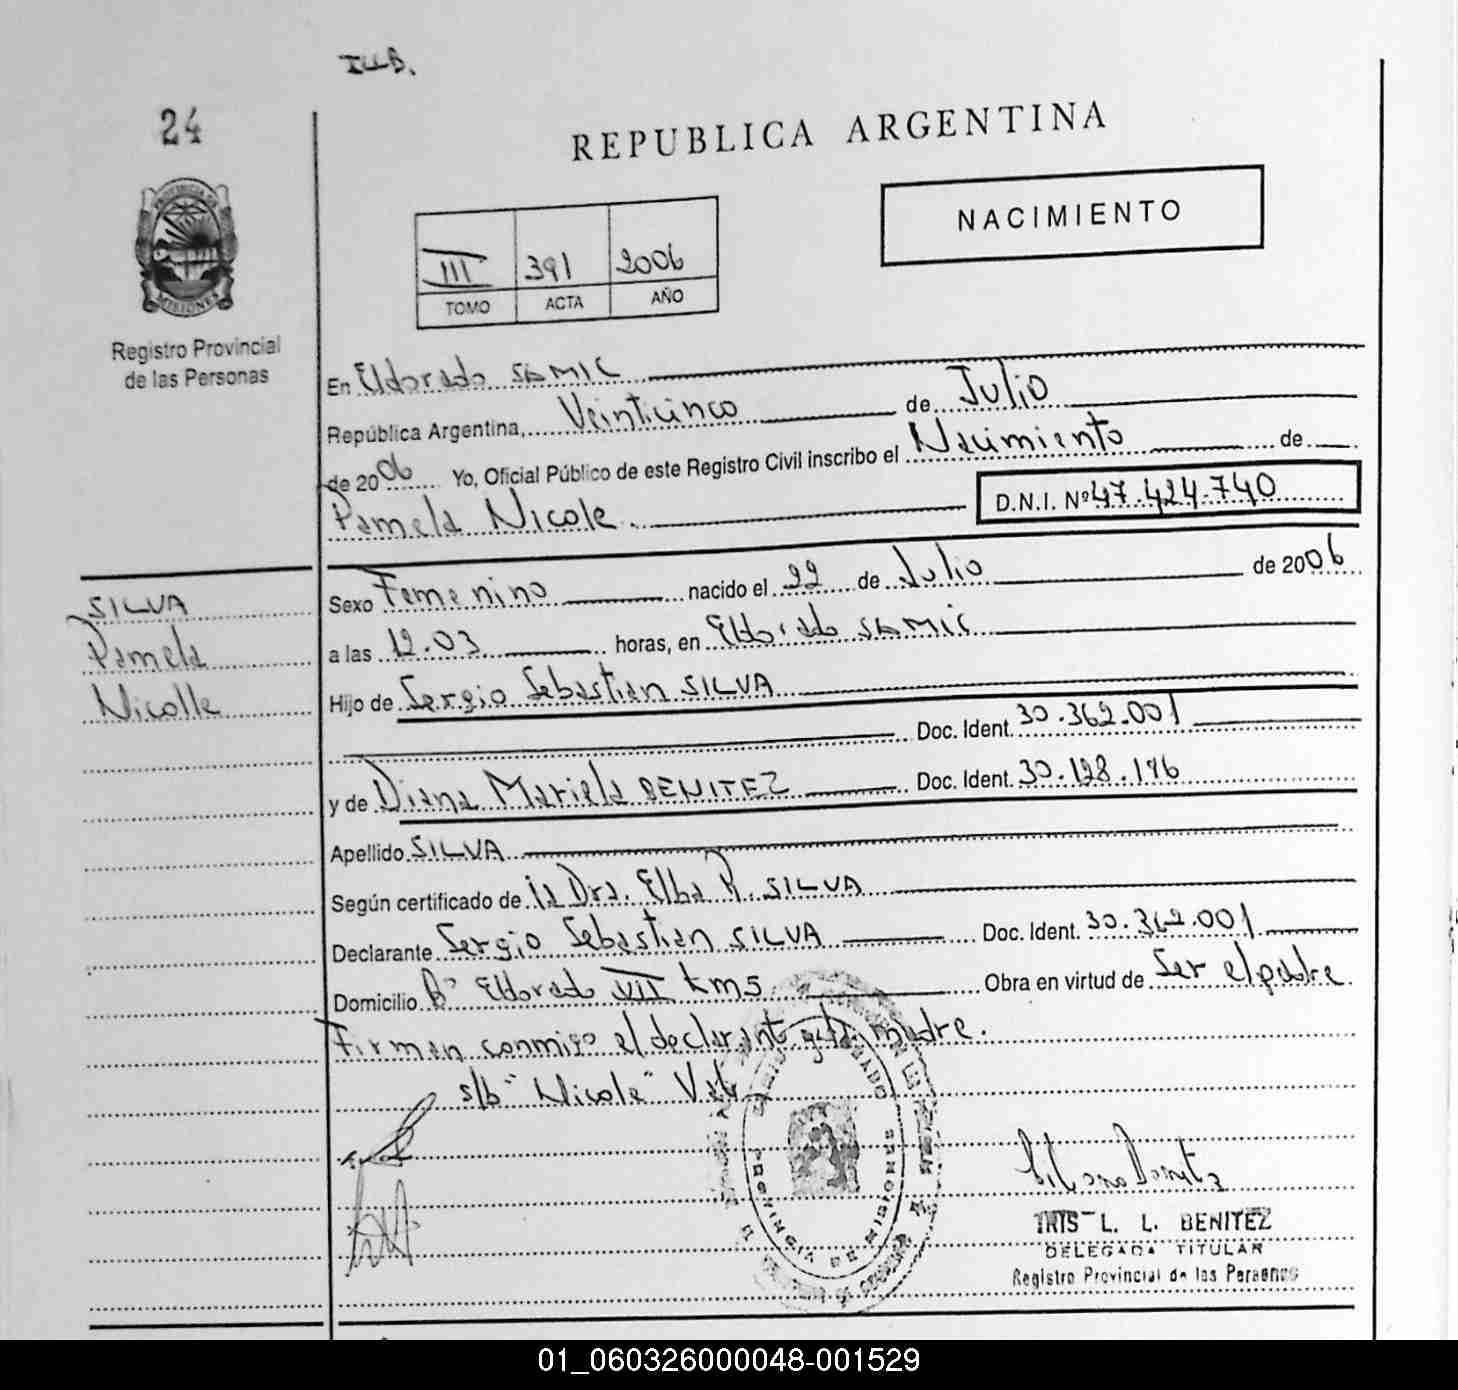 I.LL.B.
24
REPUBLICA ARGENTINA
NACIMIENTO
III 391 2006
TOMO ACTA AÑO
PROVINCIA DE
MISIONES
Registro Provincial
de las Personas
En Eldorado SAMIC
República Argentina, Veinticinco de Julio
de 2006 Yo, Oficial Público de este Registro Civil inscribo el Nacimiento de
Pamela Nicole. D.N.I. Nº 47.424.740
SILVA
Pamela
Nicolle
Sexo Femenino nacido el 22 de Julio de 2006
a las 12.03 horas, en Eldorado SAMIC
Hijo de Sergio Sebastian SILVA
Doc. Ident. 30.362.001
y de Diana Mariela BENITEZ Doc. Ident. 30.128.196
Apellido SILVA
Según certificado de la Dra. Elba R. SILVA
Declarante Sergio Sebastian SILVA Doc. Ident. 30.362.001
Domicilio Bº Eldorado VII km5 Obra en virtud de Ser el padre
Firman conmigo el declarante y la madre.
s/b "Nicole" Vale
PROVINCIA DE MISIONES
IRIS L. L. BENITEZ
DELEGADA TITULAR
Registro Provincial de las Personas
01_060326000048-001529